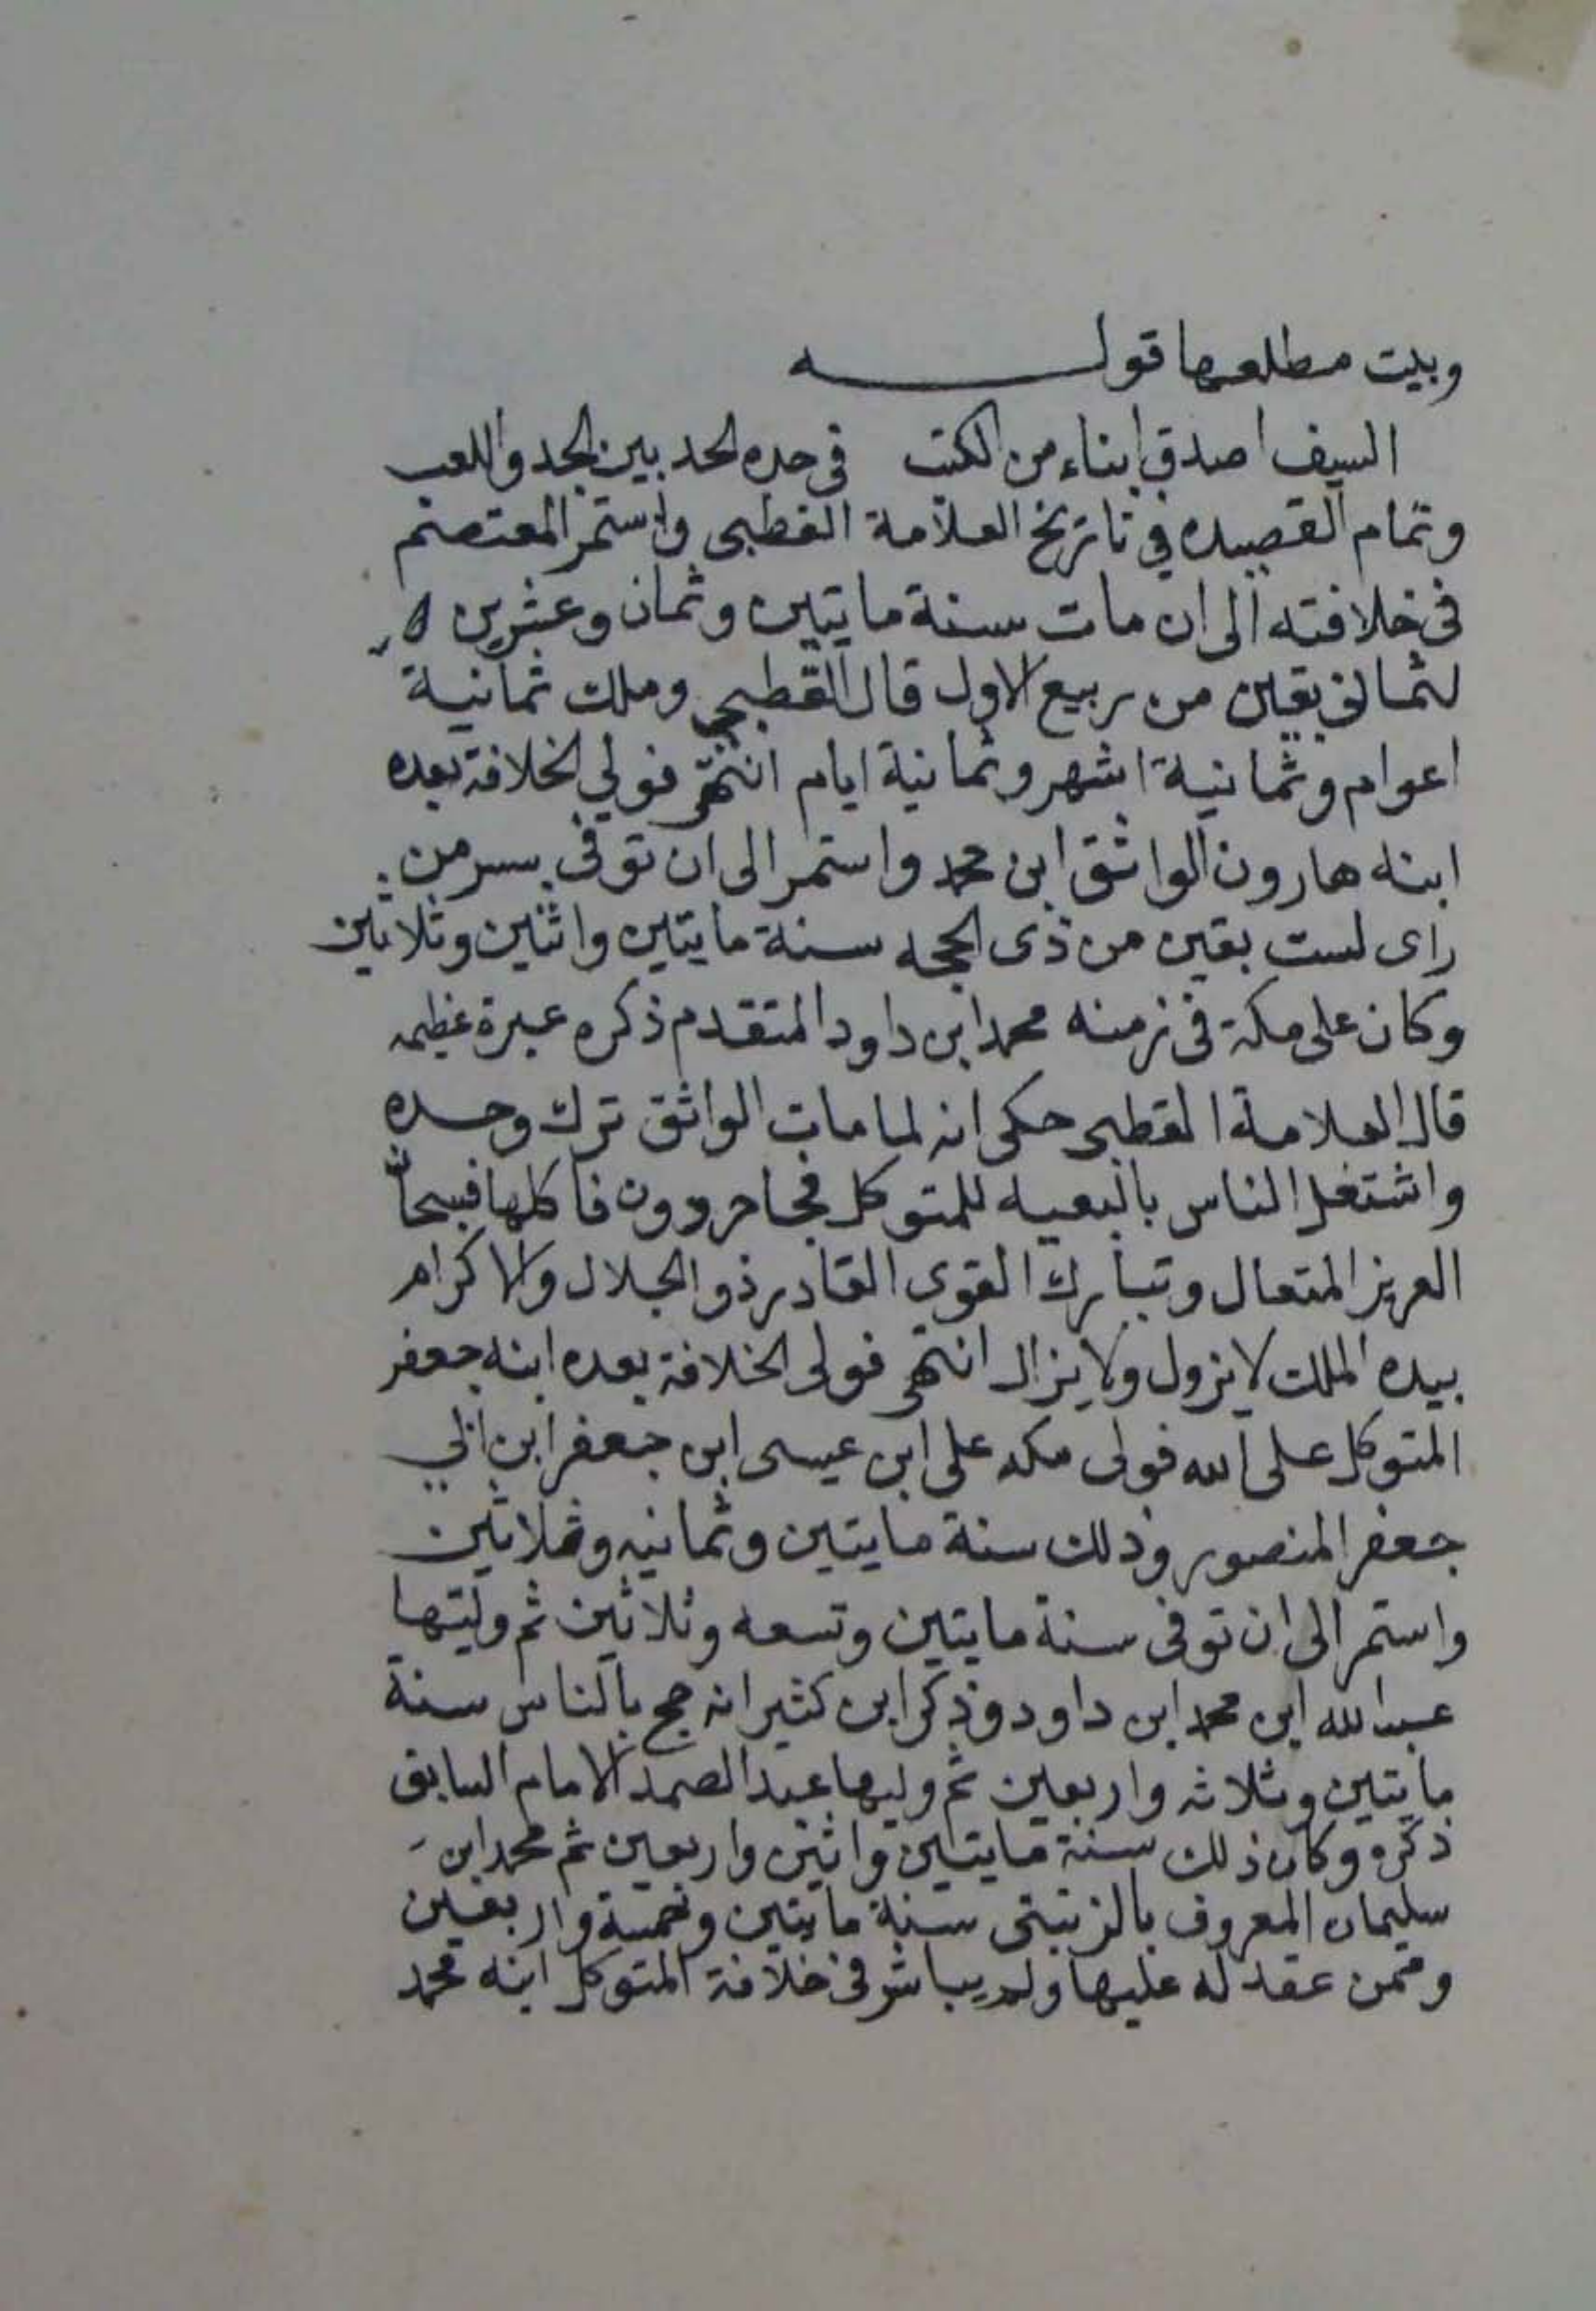 وبيت مطلعها قولـــــــه
السيف اصدق ابناء من الكتب في حده الحد بين الجد واللعب
وتمام القصيده في تاريخ العلامة القطبي واستمر المعتصم
في خلافته الى ان مات سنة مايتين وثمان وعشرين
لثماني بقين من ربيع الاول قال القطبي وملك ثمانية
اعوام وثمانية اشهر وثمانية ايام انتهى فولي الخلافة بعده
ابنه هارون الواثق ابن محمد واستمر الى ان توفى بسر من
راى لست بقين من ذى الحجه سنة مايتين واثنين وثلاثين
وكان على مكة في زمنه محمد ابن داود المتقدم ذكره عبرة عظيمه
قال العلامة القطبي حكى انه لما مات الواثق ترك وحده
واشتغل الناس بالبعيه للمتوكل فجا حردون فاكلها فسبحان
العزيز المتعال وتبارك القوى القادر ذو الجلال والاكرام
بيده الملك لا يزول ولا يزال انتهى فولى الخلافة بعده ابنه جعفر
المتوكل على الله فولى مكه على ابن عيسى ابن جعفر ابن ابي
جعفر المنصور وذلك سنة مايتين وثمانيه وثلاثين
واستمر الى ان توفى سنة مايتين وتسعه وثلاثين ثم وليتها
عبد الله ابن محمد ابن داود وذكر ابن كثير انه حج بالناس سنة
مايتين وثلاثه واربعين ثم وليها عبد الصمد الامام السابق
ذكره وكان ذلك سنة مايتين واثنين واربعين ثم محمد ابن
سليمان المعروف بالزينبى سنة مايتين وخمسة واربعين
وممن عقد له عليها ولم يباشر في خلافة المتوكل ابنه محمد